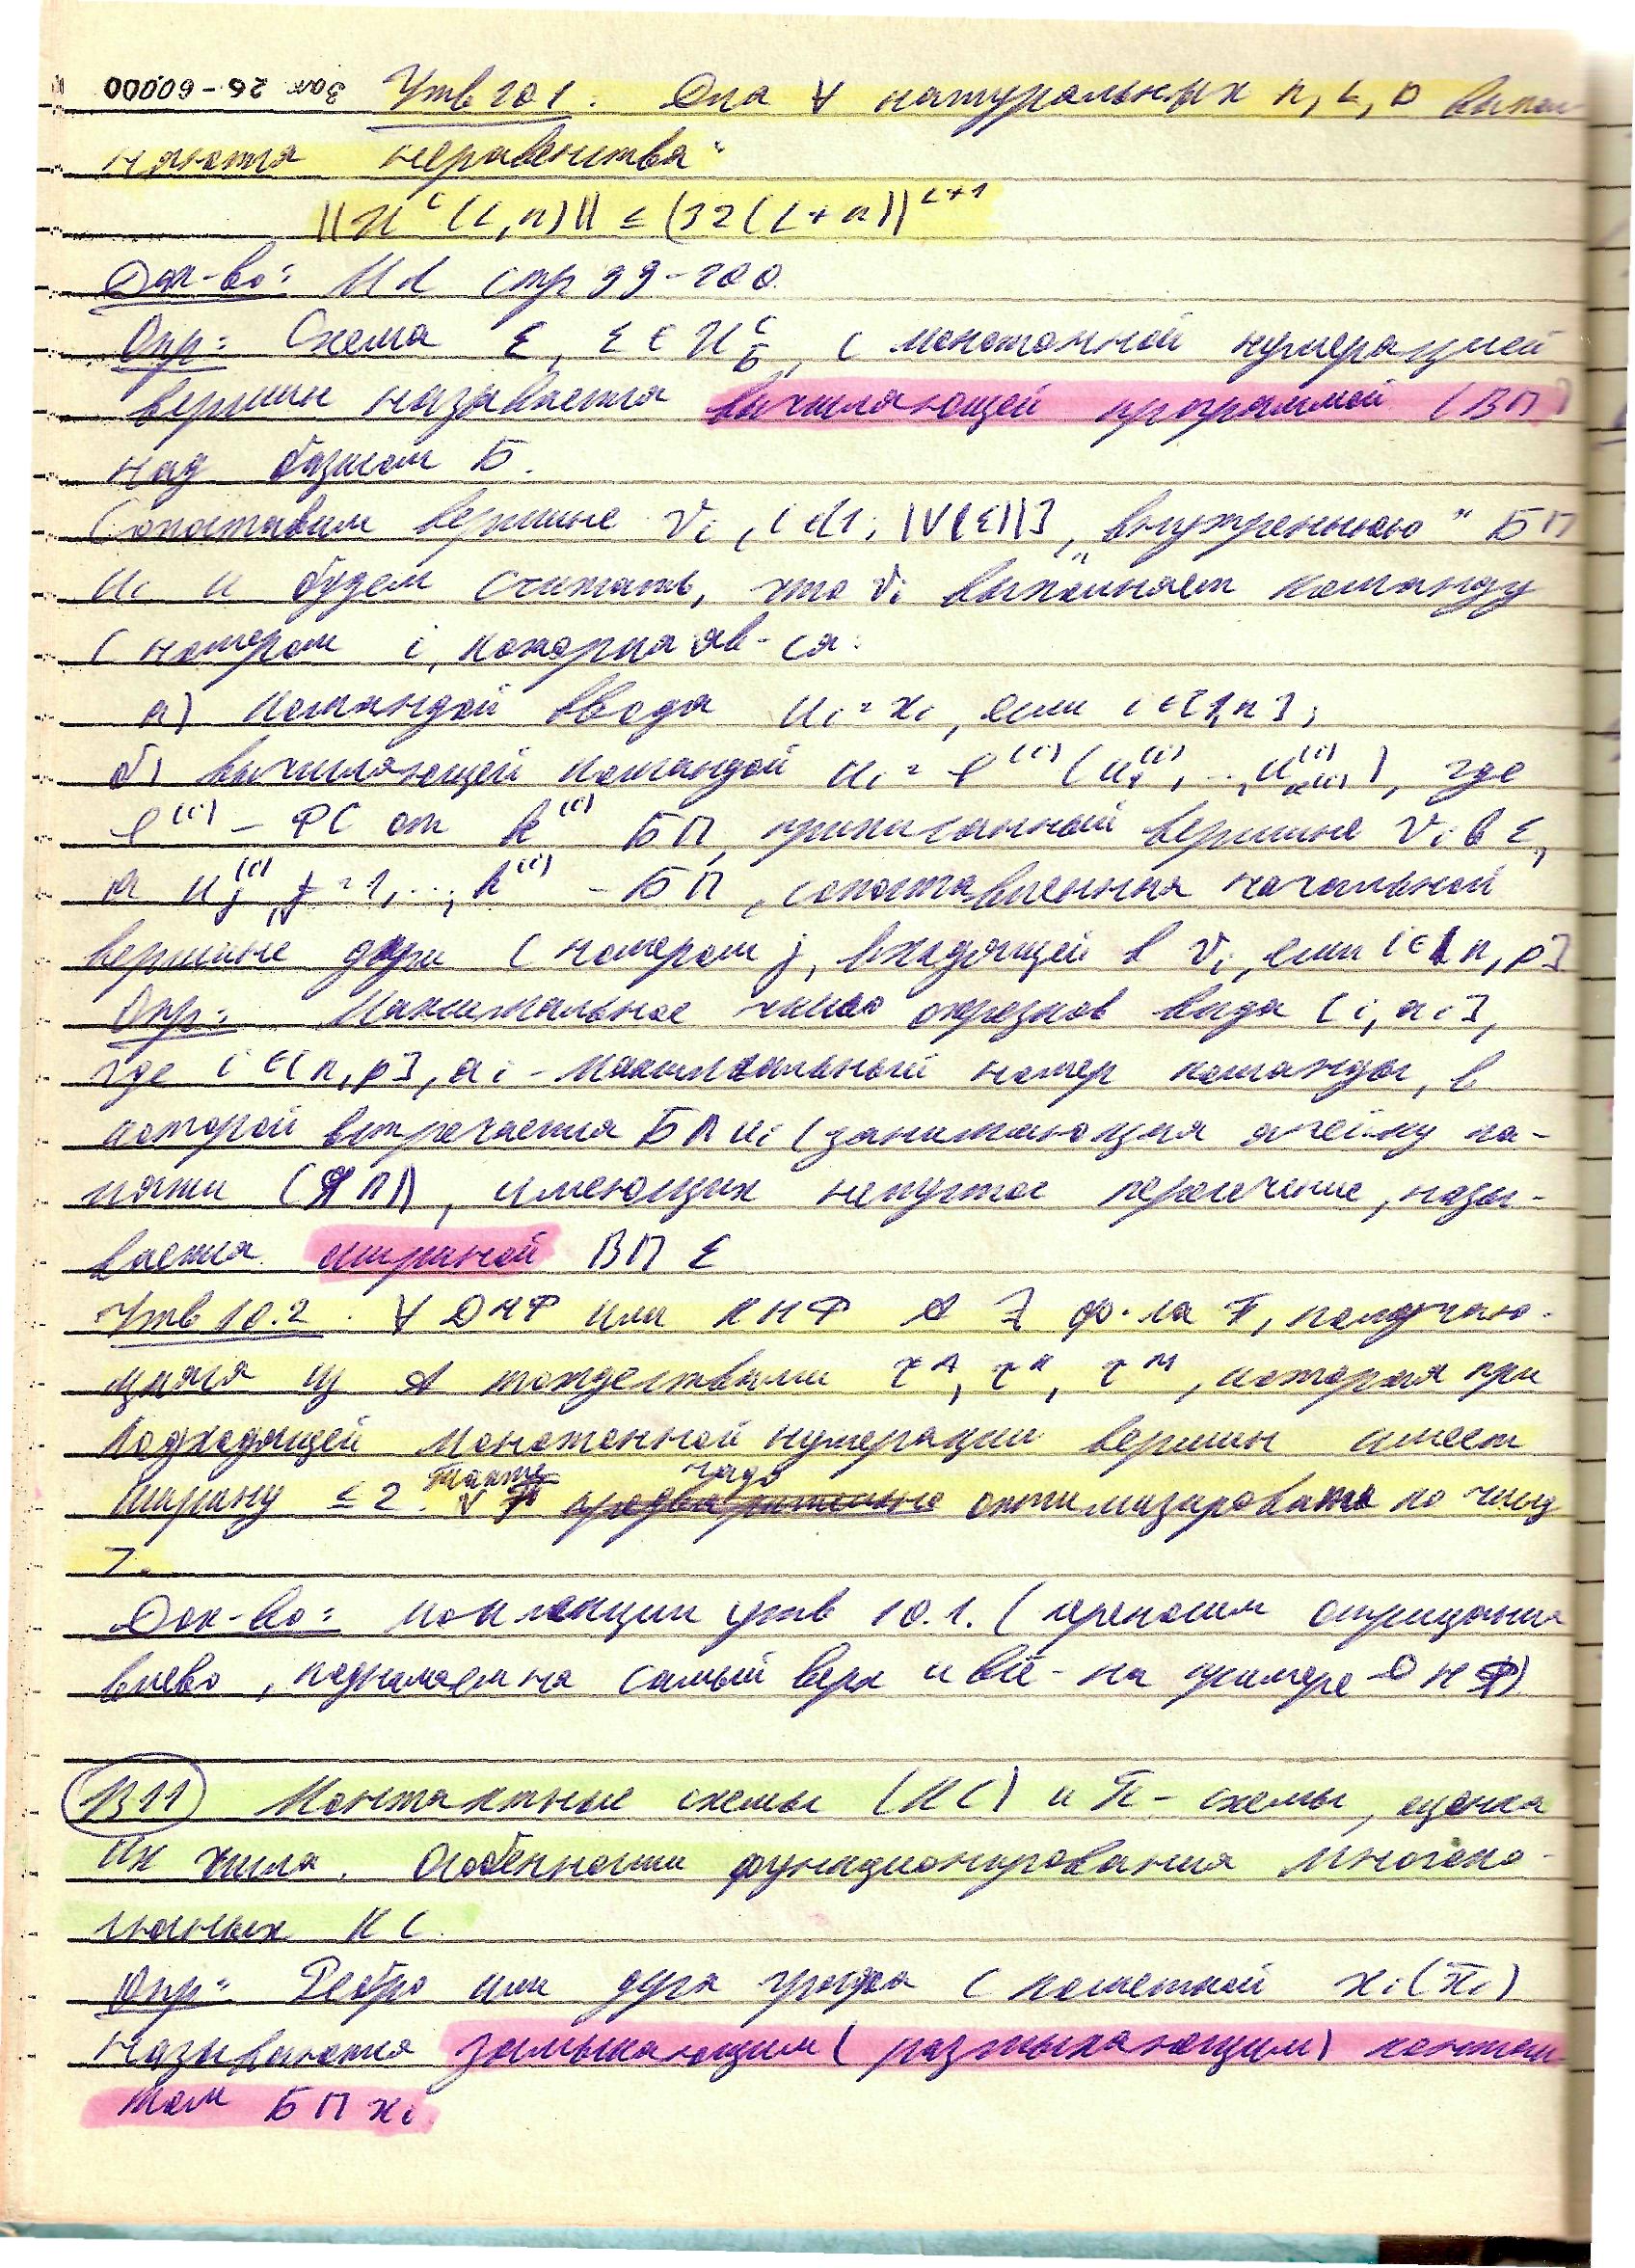 Зак 26-60000 Утв 10.1. Для ∀ натуральных n, L, D выпол-
няются неравенства:
||U^C(L,n)|| ≤ (32(L+n))^{L+1}
Док-во: Ml стр 99-100.
Опр: Схема Σ, Σ ∈ U^C_Б, с монотонной нумерацией
вершин называется вычисляющей программой (ВП)
над базисом Б.
Сопоставим вершине v_i, i∈[1, |V(Σ)|], "внутреннюю" БП
u_i и будем считать, что v_i выполняет команду
с номером i, которая яв-ся:
а) командой ввода u_i = x_i, если i∈[1,n];
б) вычисляющей командой u_i = φ^(i)(u_1^(i), ..., u_k^(i)^(i)), где
φ^(i) – ФС от k^(i) БП, приписанный вершине v_i в Σ,
а u_j^(i), j=1,...,k^(i) – БП, сопоставленная начальной
вершине дуги с номером j, входящей в v_i, если i∈(n,p]
Опр: Максимальное число отрезков вида [i, a_i],
где i∈(n,p], a_i – максимальный номер команды, в
которой встречается БП u_i (занимающая ячейку па-
мяти (ЯП)), имеющих непустое пересечение, назы-
вается шириной ВП Σ
Утв 10.2. ∀ ДНФ или КНФ A ∃ ф-ла F, получаю-
щаяся из A тождествами τ^A, τ^K, τ^M, которая при
подходящей монотонной нумерации вершин имеет
ширину ≤ 2. надо оптимизировать по числу
7.
Док-во: конспекция утв 10.1. (переносим отрицания
влево, поднимаем на самый верх и всё – на примере ДНФ)
В11 Контактные схемы (КС) и π-схемы, оценка
их числа. Особенности функционирования многопо-
люсных КС.
Опр: Ребро или дуга графа с пометкой x_i (x̄_i)
называются замыкающим (размыкающим) контак-
том БП x_i